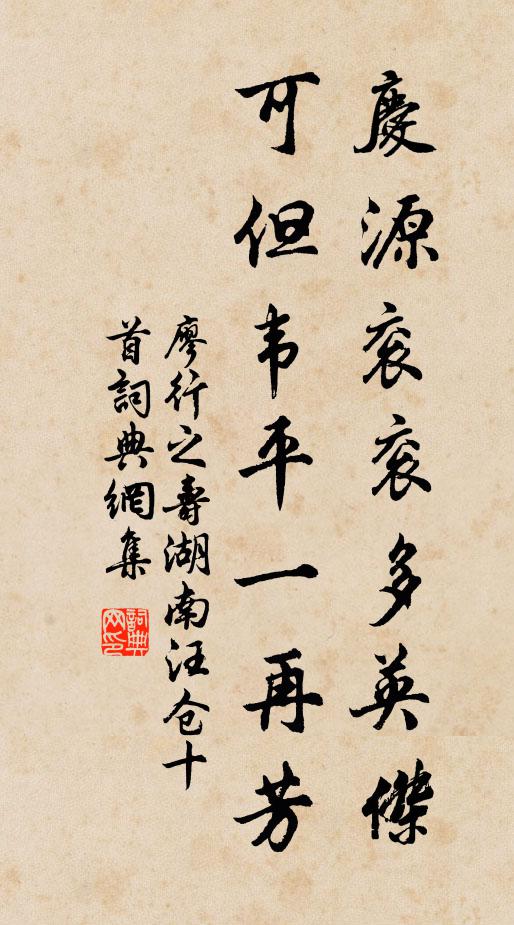 慶源衮衮多英傑
可但韦平一再芳
廖行之壽湖南汪仓十
首詞典網集
詞典
网印